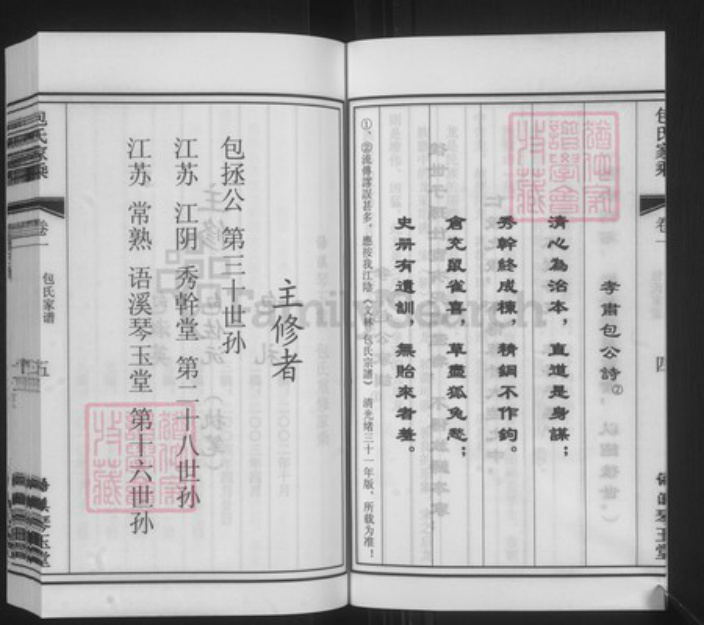 包氏家乘
卷一
四
孝肅包公詩②
清心為治本，直道是身謀；
秀幹終成棟，精鋼不作鉤。
倉充鼠雀喜，草盡狐兔愁；
史册有遺訓，無貽來者羞。
①、②流傳謬誤甚多，應按我江陰《文林包氏宗譜》清光緒三十一年版，所載为准！
主修者
包拯公 第三十世孙
江苏 江阴 秀幹堂 第二十八世孙
江苏 常熟 语溪琴玉堂 第十六世孙
包氏家乘
卷一
包氏家谱
五
琴玉堂
FamilySearch